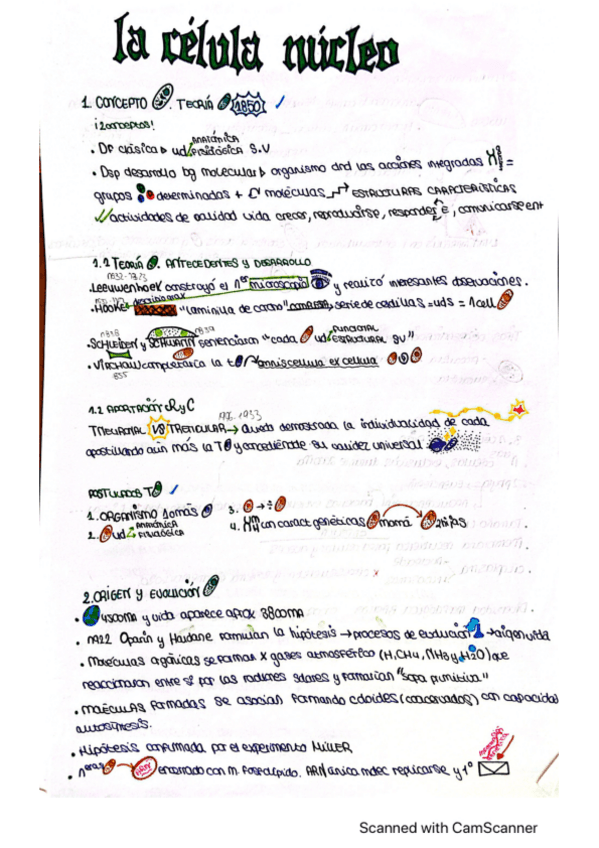 la célula núcleo
1. CONCEPTO. TEORÍA 1850
¡2 conceptos!
ANATÓMICA
• Df clásica ud FISIOLÓGICA S.V
• Dsp desarrollo bg molecular organismo dnd las acciones integradas X =
grupos determinadas + moléculas ESTRUCTURAS CARACTERÍSTICAS
actividades de calidad vida crecer, reproducirse, responder e, comunicarse ent
1.2 TEORÍA. ANTECEDENTES Y DESARROLLO
1632-1723
• Leeuwenhoek construyó el 1er microscopio y realizó interesantes observaciones.
• HOOKE "laminilla de corcho" serie de cadillas = uds = 1 cell
1838 1839
FUNCIONAL
• SCHLEIDEN y SCHWANN sentenciaron "cada ud ESTRUCTURAL SV"
• VIRCHOW completaría la t "omnis cellula ex cellula"
855
1.2 APORTACIÓN RyC
1933
T NEURONAL VS T RETICULAR → Queda demostrada la individualidad de cada
apostillando aún más la T y concediéndole su validez universal
POSTULADOS T
1. ORGANISMO 1 o más 3. → ÷
ANATÓMICA
2. ud FISIOLÓGICA 4. con caract genéticas mamá 2 hijas
2. ORIGEN Y EVOLUCIÓN
• 4500MA y vida aparece aprox 3800MA
• 1922 Oparin y Haldane formulan la hipótesis → procesos de evolución → origen vida
• Moléculas orgánicas se forman x gases atmosférico (H, CH4, NH3 y H2O) que
reaccionaron entre sí por las radiones solares y formarían "sopa primitiva"
• Moléculas formadas se asocian formando coloides (coacervados) con capacidad
autosíntesis.
• Hipótesis confirmada por el experimento MILLER
• 1eras → encerrado con m. fosfolípido. ARN única molec replicarse y 1º
Scanned with CamScanner